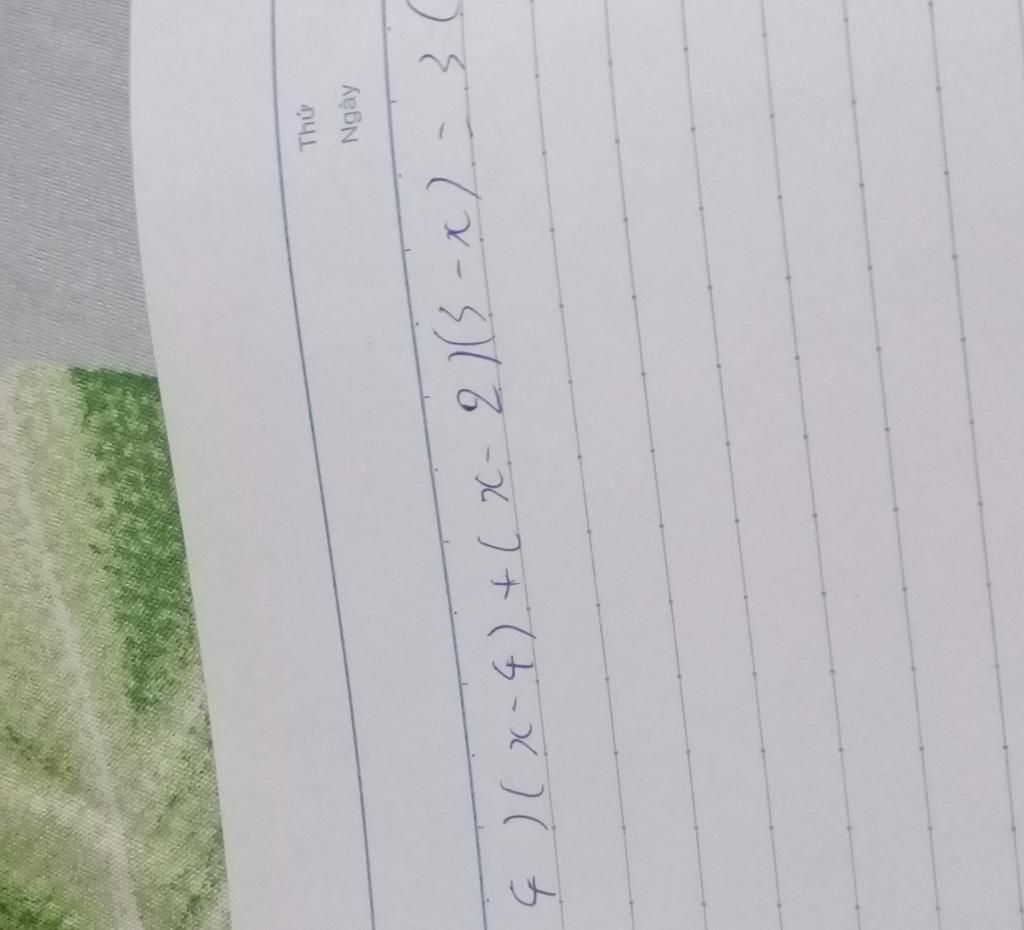 Thứ
Ngày
4)(x-4)+(x-2)(3-x)-3(